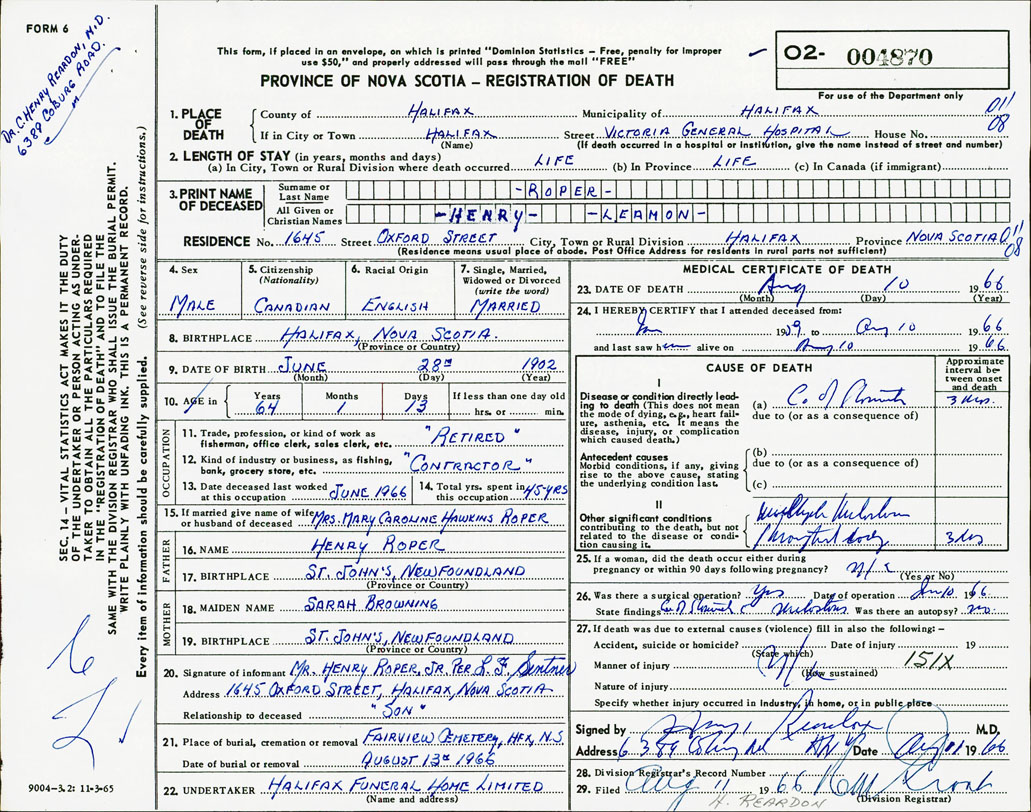 FORM 6
DR. C. HENRY REARDON, M.D.
6389 COBURG ROAD.
This form, if placed in an envelope, on which is printed "Dominion Statistics – Free, penalty for improper
use $50," and properly addressed will pass through the mail "FREE"
PROVINCE OF NOVA SCOTIA – REGISTRATION OF DEATH
02- 004870
For use of the Department only
1. PLACE OF DEATH
County of HALIFAX Municipality of HALIFAX 011
If in City or Town HALIFAX Street VICTORIA GENERAL HOSPITAL House No. 08
(Name) (If death occurred in a hospital or institution, give the name instead of street and number)
2. LENGTH OF STAY (in years, months and days)
(a) In City, Town or Rural Division where death occurred LIFE (b) In Province LIFE (c) In Canada (if immigrant)
3. PRINT NAME OF DECEASED
Surname or Last Name -ROPER-
All Given or Christian Names -HENRY- -LEAMON-
RESIDENCE No. 1645 Street OXFORD STREET City, Town or Rural Division HALIFAX Province NOVA SCOTIA 011
(Residence means usual place of abode. Post Office Address for residents in rural parts not sufficient) 08
SEC. 14 – VITAL STATISTICS ACT MAKES IT THE DUTY
OF THE UNDERTAKER OR PERSON ACTING AS UNDER-
TAKER TO OBTAIN ALL THE PARTICULARS REQUIRED
IN THE "REGISTRATION OF DEATH" AND TO FILE THE
SAME WITH THE DIVISION REGISTRAR WHO SHALL ISSUE THE BURIAL PERMIT.
WRITE PLAINLY WITH UNFADING INK. THIS IS A PERMANENT RECORD.
Every item of information should be carefully supplied. (See reverse side for instructions.)
4. Sex
MALE
5. Citizenship
(Nationality)
CANADIAN
6. Racial Origin
ENGLISH
7. Single, Married,
Widowed or Divorced
(write the word)
MARRIED
8. BIRTHPLACE HALIFAX, NOVA SCOTIA.
(Province or Country)
9. DATE OF BIRTH JUNE 28TH 1902
(Month) (Day) (Year)
10. AGE in Years Months Days If less than one day old
64 1 13 hrs. or min.
OCCUPATION
11. Trade, profession, or kind of work as
fisherman, office clerk, sales clerk, etc. "RETIRED"
12. Kind of industry or business, as fishing,
bank, grocery store, etc. "CONTRACTOR"
13. Date deceased last worked
at this occupation JUNE 1966
14. Total yrs. spent in
this occupation 45-YRS
15. If married give name of wife
or husband of deceased MRS. MARY CAROLINE HAWKINS ROPER
FATHER
16. NAME HENRY ROPER
17. BIRTHPLACE ST. JOHN'S, NEWFOUNDLAND
(Province or Country)
MOTHER
18. MAIDEN NAME SARAH BROWNING
19. BIRTHPLACE ST. JOHN'S, NEWFOUNDLAND
(Province or Country)
20. Signature of informant MR. HENRY ROPER, JR. PER L. F.
Address 1645 OXFORD STREET, HALIFAX, NOVA SCOTIA
Relationship to deceased "SON"
21. Place of burial, cremation or removal FAIRVIEW CEMETERY, HFX, N.S.
Date of burial or removal AUGUST 13TH 1966
22. UNDERTAKER HALIFAX FUNERAL HOME LIMITED
(Name and address)
9004-3.2: 11-3-65
MEDICAL CERTIFICATE OF DEATH
23. DATE OF DEATH Aug 10 1966
(Month) (Day) (Year)
24. I HEREBY CERTIFY that I attended deceased from:
19 to Aug 10 1966
and last saw him alive on Aug 10 1966.
CAUSE OF DEATH
Approximate
interval be-
tween onset
and death
I
Disease or condition directly lead-
ing to death (This does not
mean the mode of dying, e.g., heart fail-
ure, asthenia, etc. It means the
disease, injury, or complication
which caused death.)
(a) Ca of Stomach 3 mos.
due to (or as a consequence of)
Antecedent causes
Morbid conditions, if any, giving
rise to the above cause, stating
the underlying condition last.
(b)
due to (or as a consequence of)
(c)
II
Other significant conditions
contributing to the death, but not
related to the disease or condi-
tion causing it.
Multiple
3
25. If a woman, did the death occur either during
pregnancy or within 90 days following pregnancy?
(Yes or No)
26. Was there a surgical operation? Yes Date of operation 10 1966
State findings Ca of Stomach Was there an autopsy? no
27. If death was due to external causes (violence) fill in also the following: –
Accident, suicide or homicide? Date of injury 19
(State which)
Manner of injury 151X
(How sustained)
Nature of injury
Specify whether injury occurred in industry, in home, or in public place
Signed by Reardon M.D.
Address 6389 Coburg Rd Date Aug 1966
28. Division Registrar's Record Number
29. Filed Aug 11 1966
(Division Registrar)
H. REARDON